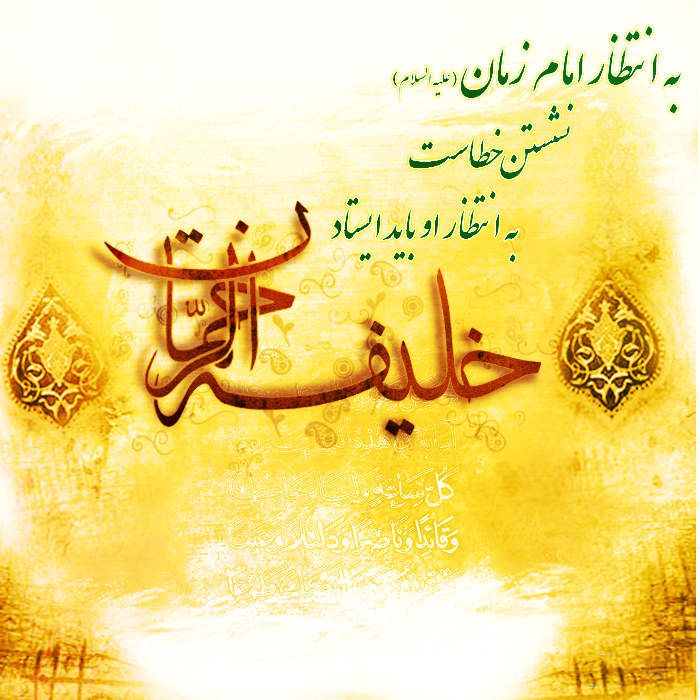 به انتظار امام زمان (علیه السلام)
نشستن خطاست
به انتظار او باید ایستاد
خلیفه الرحمان
فی هذه الساعة
کُلِّ سَاعَةٍ وَلِیّاً وَحَافِظاً
وَقَائِدًا وَنَاصِرًا وَدَلِیلًا وَعَیْناً
طَوْعاً